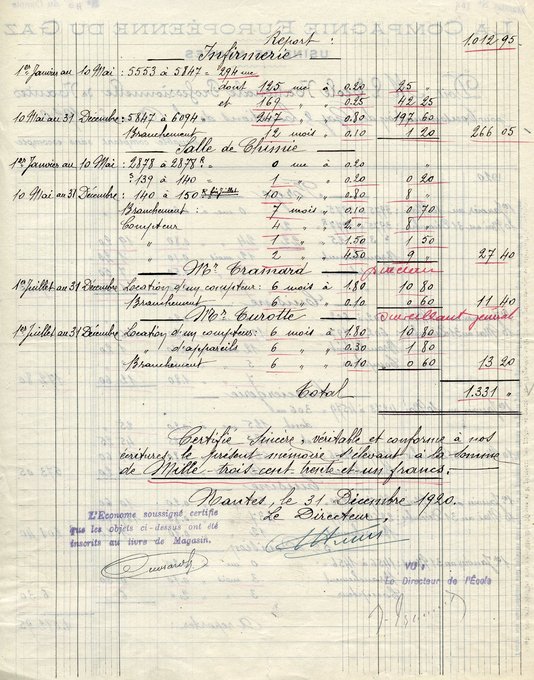 Report : 1.012 95
Infirmerie
1ers Janvier au 10 Mai : 5553 à 5847 = 294 mc
dont 125 mc à 0.20 25 "
et 169 " 0.25 42 25
10 Mai au 31 Décembre : 5847 à 6094 = 247 " à 0.80 197 60
Branchement 12 mois à 0.10 1 20 266 05
Salle de Chimie
1ers Janvier au 10 Mai : 2878 à 2878 = 0 mc à 0.20 "
139 à 140 = 1 " à 0.20 0 20
10 Mai au 31 Décembre : 140 à 150 10 " à 0.80 8 "
Branchement : 7 mois à 0.10 0 70
Compteur 4 " à 2 " 8 "
" 1 " à 1.50 1 50
" 2 " à 4.50 9 " 27 40
Mr Tramard
1er Juillet au 31 Décembre Location d'un compteur : 6 mois à 1.80 10 80
Branchement 6 " à 0.10 0 60 11 40
Mr Turotte surveillant général
1er Juillet au 31 Décembre Location d'un compteur : 6 mois à 1.80 10 80
" d'appareils 6 " à 0.30 1 80
Branchement 6 " à 0.10 0 60 13 20
Total 1.331 "
Certifié sincère, véritable et conforme à nos
écritures, le présent mémoire s'élevant à la somme
de Mille trois cent trente et un francs.
Nantes, le 31 Décembre 1920.
Le Directeur,
L'Econome soussigné certifie
que les objets ci-dessus ont été
inscrits au livre de Magasin.
VU :
Le Directeur de l'Ecole